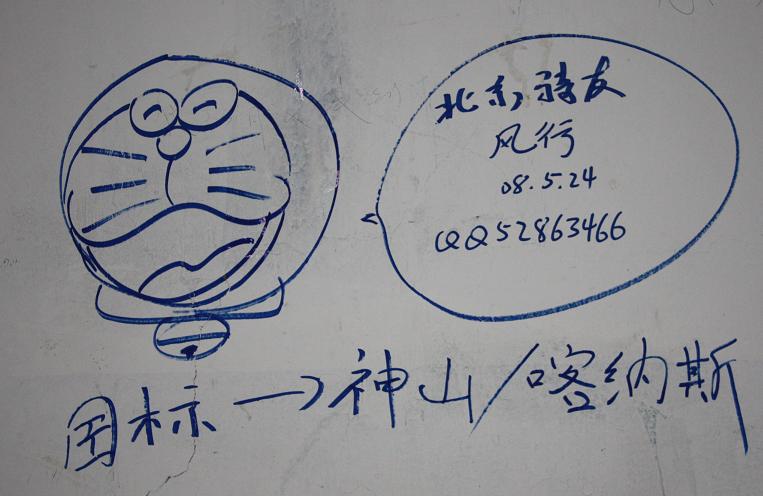 北京骑友
风行
08.5.24
QQ52863466
国标→神山/喀纳斯